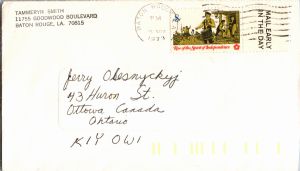 TAMMERYN SMITH
11755 GOODWOOD BOULEVARD
BATON ROUGE, LA. 70815
BATON ROUGE
PM
1973
MAIL EARLY
IN THE DAY
Rise of the Spirit of Independence
Jerry Obesnyckyj
43 Huron St.
Ottowa Canada
Ontario
K1Y OW1